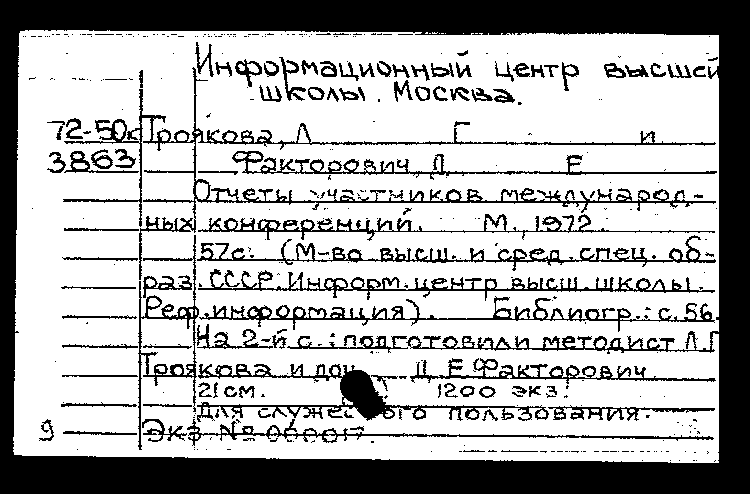 Информационный центр высшей
школы. Москва.
72-50к Троякова, Л Г и
3863 Факторович, Д Е
Отчеты участников международ-
ных конференций. М., 1972.
57с. (М-во высш. и сред. спец. об-
раз. СССР. Информ. центр высш. школы.
Реф. информация). Библиогр.: с. 56.
На 2-й с.: подготовили методист Л.Г
Троякова и доц. Д.Е.Факторович
21см. 1200 экз.
Для пользования.
9 Экз №000017.